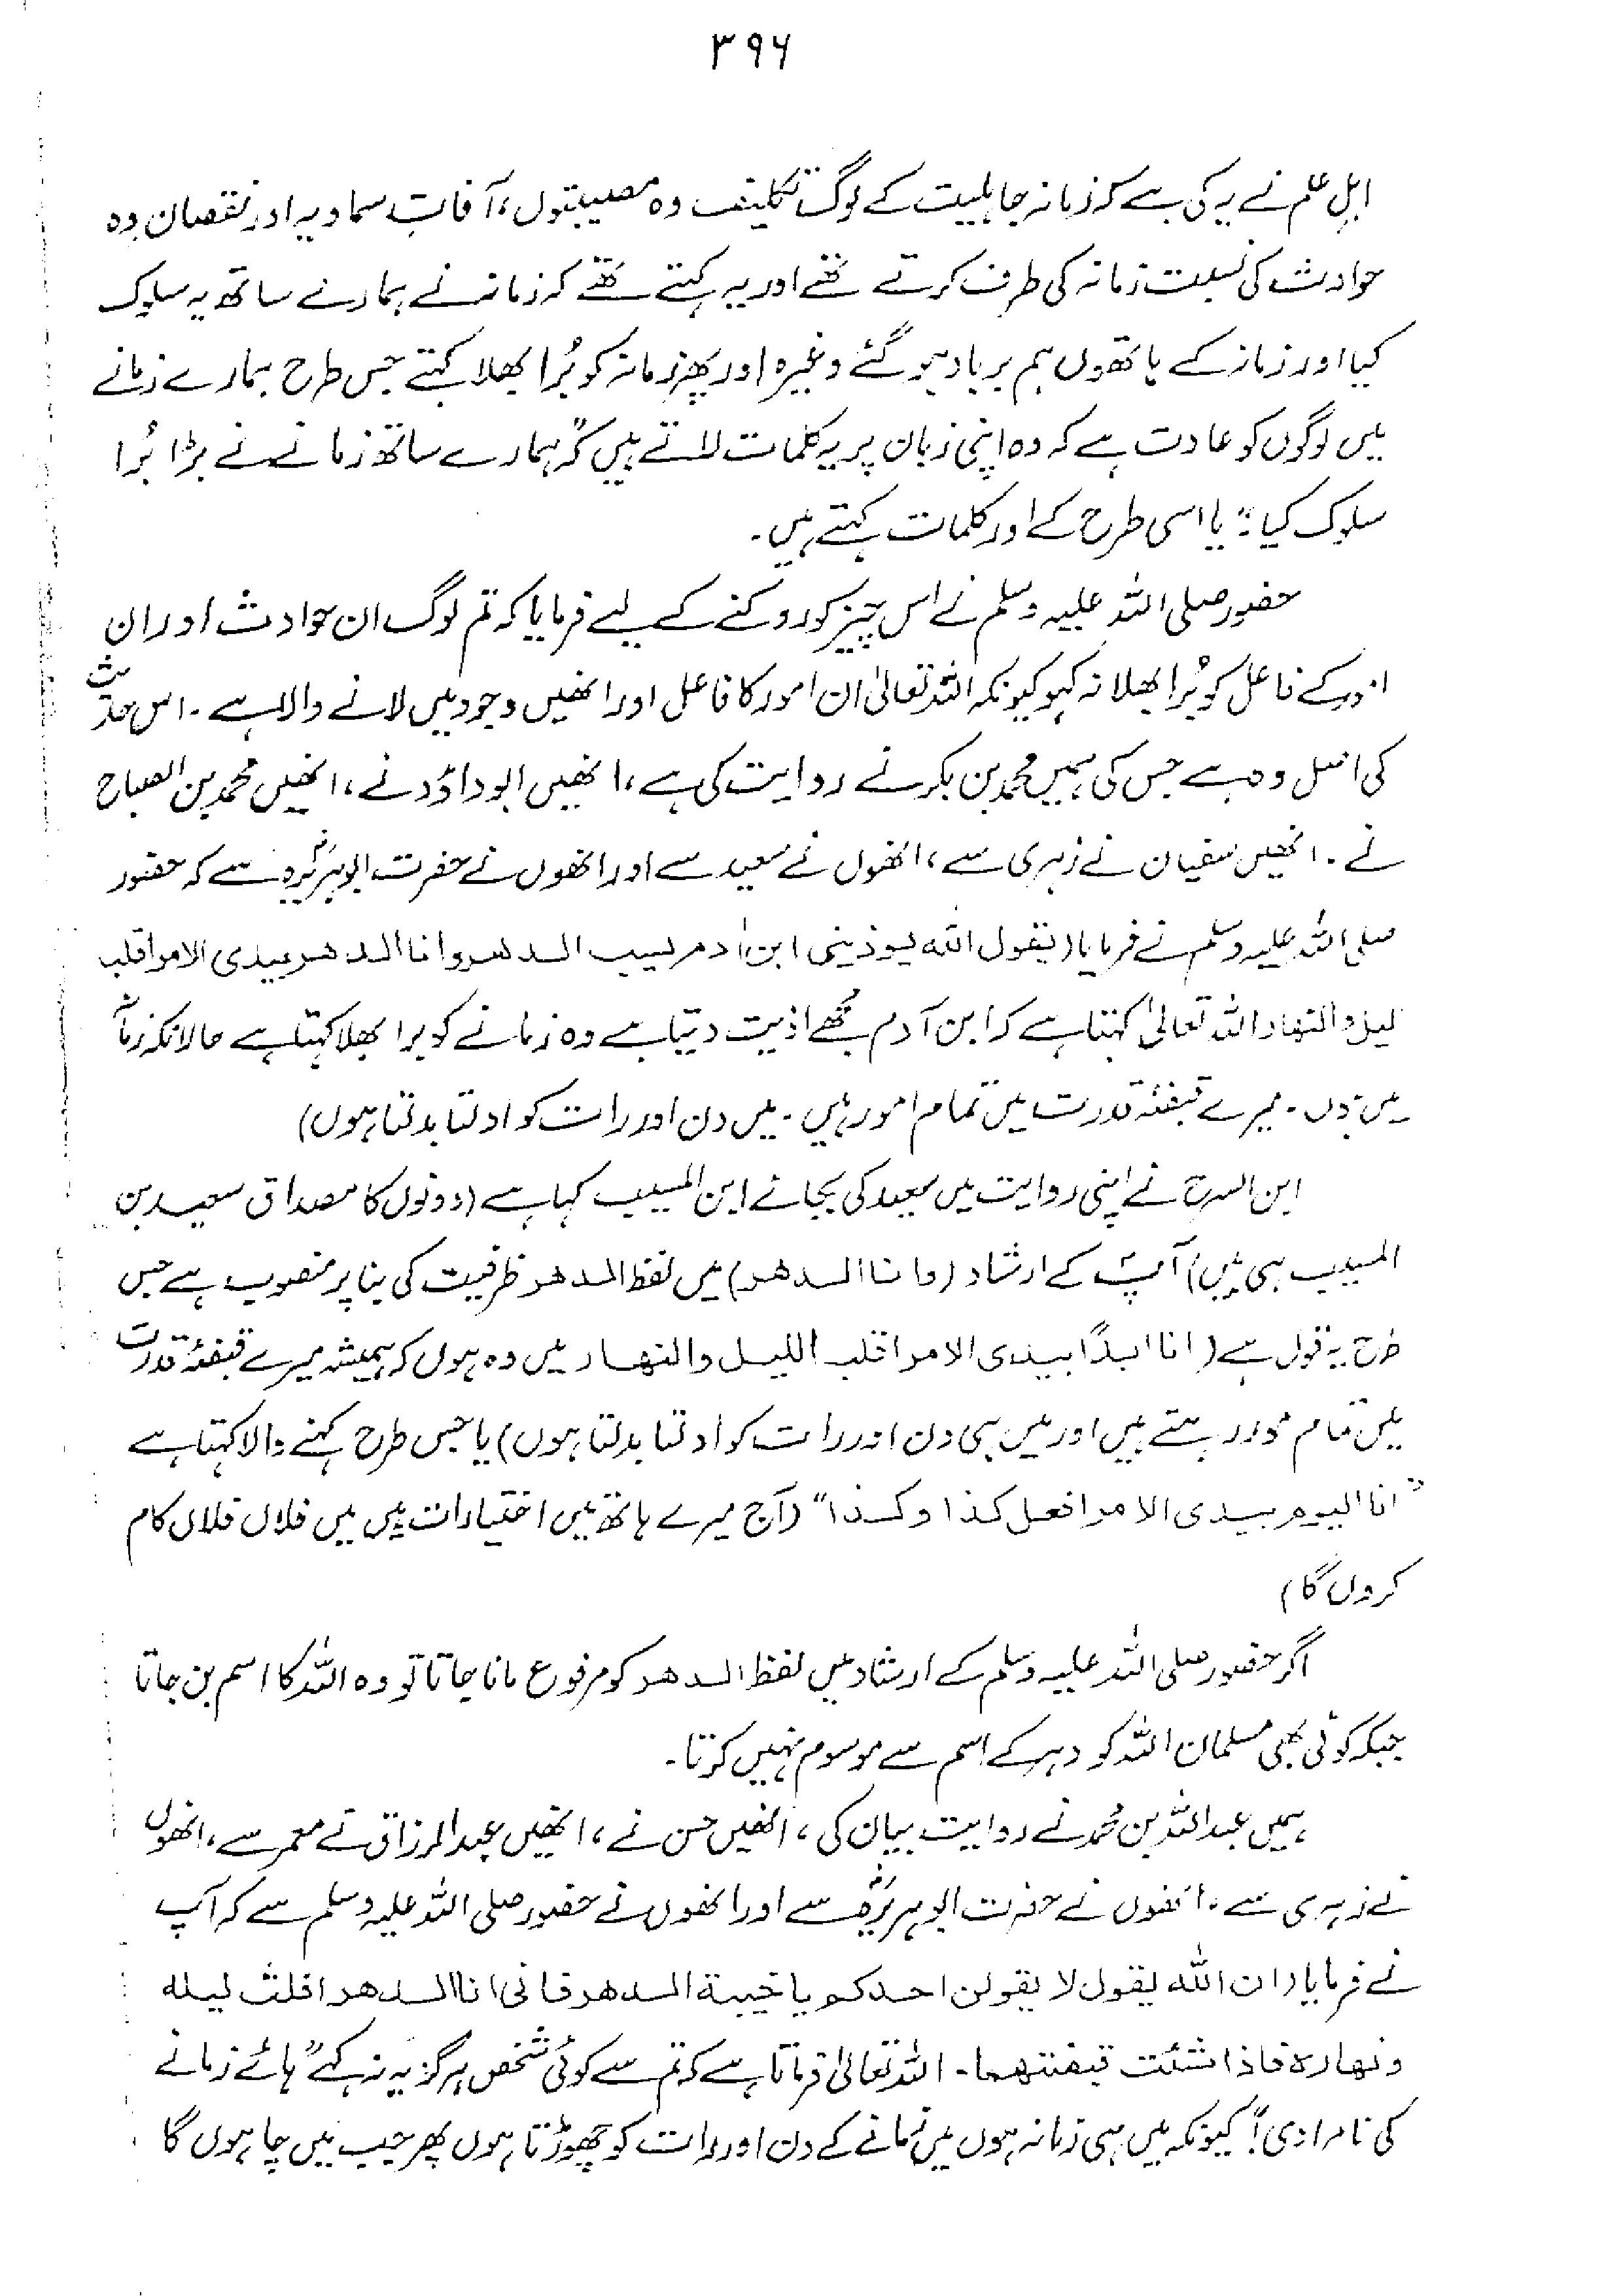 ۳۹۶
اہل علم نے یہ کی ہے کہ زمانہ جاہلیت کے لوگ تکلیف دہ مصیبتوں، آفات سماویہ اور نقصان دہ
حوادث کی نسبت زمانہ کی طرف کرتے تھے اور یہ کہتے تھے کہ زمانے نے ہمارے ساتھ یہ سلوک
کیا اور زمانہ کے ہاتھوں ہم برباد ہو گئے وغیرہ اور پھر زمانہ کو بُرا بھلا کہتے جس طرح ہمارے زمانے
میں لوگوں کو عادت ہے کہ وہ اپنی زبان پر یہ کلمات لاتے ہیں کہ "ہمارے ساتھ زمانے نے بڑا بُرا
سلوک کیا" یا اسی طرح کے اور کلمات کہتے ہیں۔
حضور صلی اللہ علیہ وسلم نے اس چیز کو روکنے کے لیے فرمایا کہ تم لوگ ان حوادث اور ان
امور کے فاعل کو بُرا بھلا نہ کہو کیونکہ اللہ تعالیٰ ان امور کا فاعل اور انھیں وجود میں لانے والا ہے۔ اس حدیث
کی اصل وہ ہے جس کی ہمیں محمد بن بکر نے روایت کی ہے، انھیں ابو داؤد نے، انھیں محمد بن الصباح
نے۔ انھیں سفیان نے زہری سے، انھوں نے سعید سے اور انھوں نے حضرت ابوہریرہؓ سے کہ حضور
صلی اللہ علیہ وسلم نے فرمایا (یقول اللہ یوذینی ابن اٰدم یسب الدھر وانا الدھر بیدی الامر اقلب
لیل والنھار اللہ تعالیٰ کہتا ہے کہ ابن آدم مجھے اذیت دیتا ہے وہ زمانے کو برا بھلا کہتا ہے حالانکہ زمانہ
میں ہوں۔ میرے قبضۂ قدرت میں تمام امور ہیں۔ میں دن اور رات کو ادلتا بدلتا ہوں)
ابن السرح نے اپنی روایت میں سعید کی بجائے ابن المسیب کہا ہے (دونوں کا مصداق سعید بن
المسیب ہی ہیں) آپؐ کے ارشاد (وانا الدھر) میں لفظ الدھر ظرفیت کی بنا پر منصوب ہے جس
طرح یہ قول ہے (انا ابدًا بیدی الامر اقلب اللیل والنھار میں وہ ہوں کہ ہمیشہ میرے قبضۂ قدرت
میں تمام امور رہتے ہیں اور میں ہی دن اور رات کو ادلتا بدلتا ہوں) یا جس طرح کہنے والا کہتا ہے
"انا الیوم بیدی الامر افعل کذا وکذا" (آج میرے ہاتھ میں اختیارات ہیں میں فلاں فلاں کام
کروں گا)
اگر حضور صلی اللہ علیہ وسلم کے ارشاد میں لفظ الدھر کو مرفوع مانا جاتا تو وہ اللہ کا اسم بن جاتا
جبکہ کوئی بھی مسلمان اللہ کو دہر کے اسم سے موسوم نہیں کرتا۔
ہمیں عبداللہ بن محمد نے روایت بیان کی، انھیں حسن نے، انھیں عبدالرزاق نے معمر سے، انھوں
نے زہری سے، انھوں نے حضرت ابوہریرہؓ سے اور انھوں نے حضور صلی اللہ علیہ وسلم سے کہ آپ
نے فرمایا (ان اللہ یقول لا یقولن احدکم یا خیبة الدھر فانی انا الدھر اقلب لیلہ
ونھارہ فاذا شئت قبضتھما۔ اللہ تعالیٰ فرماتا ہے کہ تم سے کوئی شخص ہرگز یہ نہ کہے "ہائے زمانے
کی نامرادی"! کیونکہ میں ہی زمانہ ہوں میں زمانے کے دن اور رات کو چھوڑتا ہوں پھر جب میں چاہوں گا